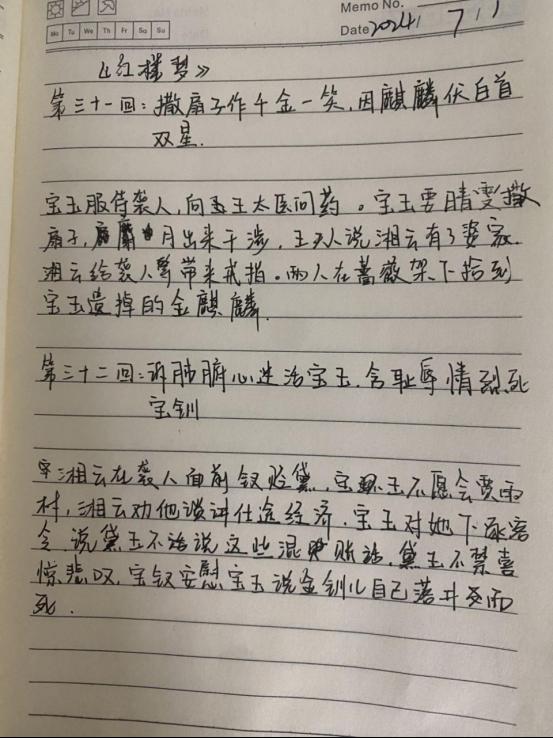 Memo No.
Mo Tu We Th Fr Sa Su
Date 2024/ 7/1
《红楼梦》
第三十一回：撒扇子作千金一笑，因麒麟伏白首
双星.
宝玉服侍袭人，向王太医问药。宝玉要晴雯撒
扇子，麝月出来干涉，王夫人说湘云有了婆家.
湘云给袭人等带来戒指。两人在蔷薇架下拾到
宝玉遗掉的金麒麟.
第三十二回：诉肺腑心迷活宝玉，含耻辱情烈死
宝钏
湘云在袭人面前钗贬黛，宝玉不愿会贾雨
村，湘云劝他谈讲仕途经济，宝玉对她下逐客
令，说黛玉不话说这些混账话，黛玉不禁喜
惊悲叹，宝钗安慰宝玉说金钏儿自己落井而
死.